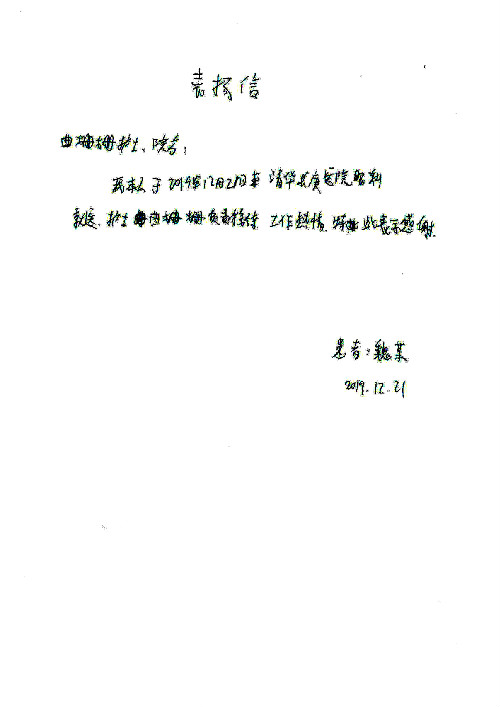 表扬信
曲珊珊护士、院者:
我本人于2019年12月21日来清华长庚医院眼科
就医、护士曲珊珊负责接待 工作热情 特此表示感谢.
患者:魏某
2019.12.21